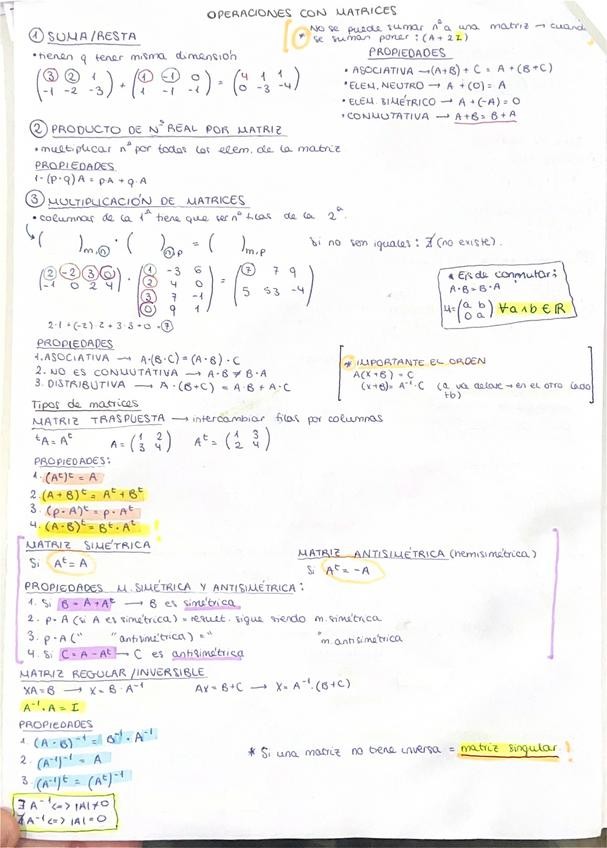 OPERACIONES CON MATRICES
① SUMA/RESTA
* No se puede sumar nº a una matriz → cuando
se suman poner: (A + 2I)
• tienen q tener misma dimension
(3 2 1 / -1 -2 -3) + (1 -1 0 / 1 -1 -1) = (4 1 1 / 0 -3 -4)
PROPIEDADES
• ASOCIATIVA → (A+B) + C = A + (B+C)
• ELEM. NEUTRO → A + (0) = A
• ELEM. SIMÉTRICO → A + (-A) = 0
• CONMUTATIVA → A+B = B+A
② PRODUCTO DE Nº REAL POR MATRIZ
• multiplicar nº por todos los elem. de la matriz
PROPIEDADES
1-(p·q)A = pA + q·A
③ MULTIPLICACIÓN DE MATRICES
• columnas de la 1ª tiene que ser nº filas de la 2ª.
( )m,n · ( )n,p = ( )m,p si no son iguales: ∄ (no existe).
(2 -2 3 0 / -1 0 2 4) · (1 -3 6 / 2 4 0 / 3 7 -1 / 0 9 1) = (7 7 9 / 5 53 -4)
2·1 + (-2)·2 + 3·3 + 0 = 7
* Ejs de conmutar:
A·B = B·A
M = (a b / 0 a) ∀a∧b ∈ ℝ
PROPIEDADES
1. ASOCIATIVA → A·(B·C) = (A·B)·C
2. NO ES CONMUTATIVA → A·B ≠ B·A
3. DISTRIBUTIVA → A·(B+C) = A·B + A·C
* IMPORTANTE EL ORDEN
A(X+B) = C
(X+B) = A⁻¹·C (a va delante → en el otro lado tb)
Tipos de matrices
MATRIZ TRASPUESTA → intercambiar filas por columnas
ᵗA = Aᵗ A = (1 2 / 3 4) Aᵗ = (1 3 / 2 4)
PROPIEDADES:
1. (Aᵗ)ᵗ = A
2. (A+B)ᵗ = Aᵗ + Bᵗ
3. (p·A)ᵗ = p·Aᵗ
4. (A·B)ᵗ = Bᵗ·Aᵗ !
MATRIZ SIMÉTRICA
Si Aᵗ = A
MATRIZ ANTISIMÉTRICA (hemisimétrica)
Si Aᵗ = -A
PROPIEDADES M. SIMÉTRICA Y ANTISIMÉTRICA:
1. Si B = A + Aᵗ → B es simétrica
2. p·A (si A es simétrica) = result. sigue siendo m. simétrica
3. p·A (" "antisimétrica) = " "m. antisimétrica
4. Si C = A - Aᵗ → C es antisimétrica
MATRIZ REGULAR/INVERSIBLE
XA = B → X = B·A⁻¹ AX = B+C → X = A⁻¹·(B+C)
A⁻¹·A = I
PROPIEDADES
1. (A·B)⁻¹ = B⁻¹·A⁻¹
2. (A⁻¹)⁻¹ = A
3. (A⁻¹)ᵗ = (Aᵗ)⁻¹
* Si una matriz no tiene inversa = matriz singular !
∃ A⁻¹ <=> |A| ≠ 0
∄ A⁻¹ <=> |A| = 0